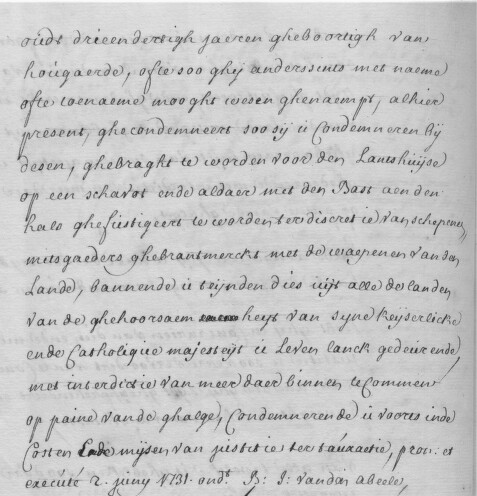 oudt drieendertigh jaeren gheboortigh van
hougaerde, ofte soo ghij anderssints met naeme
ofte toenaeme mooght wesen ghenaempt, alhier
present, ghecondemneert soo sij u Condemneren bij
desen, ghebraght te worden voor den Lantshuijse
op een schavot ende aldaer met den Bast aen den
hals ghefustigeert te worden ter discretie van schepenen,
mitsgaeders ghebrantmerckt met de waepenen van den
Lande, bannende u teijnden dies uijt alle de landen
van de ghehoorsaemheyt van syne keyserlicke
ende Catholique majesteyt u Leven lanck gedeurende,
met interdictie van meer daer binnen te Commen
op paine vande ghalge, Condemnerende u voorts inde
Costen ende mijsen van justitie ter tauxactie, pron: et
execúté 2. juny 1731. ondt. J: vanden abeele,